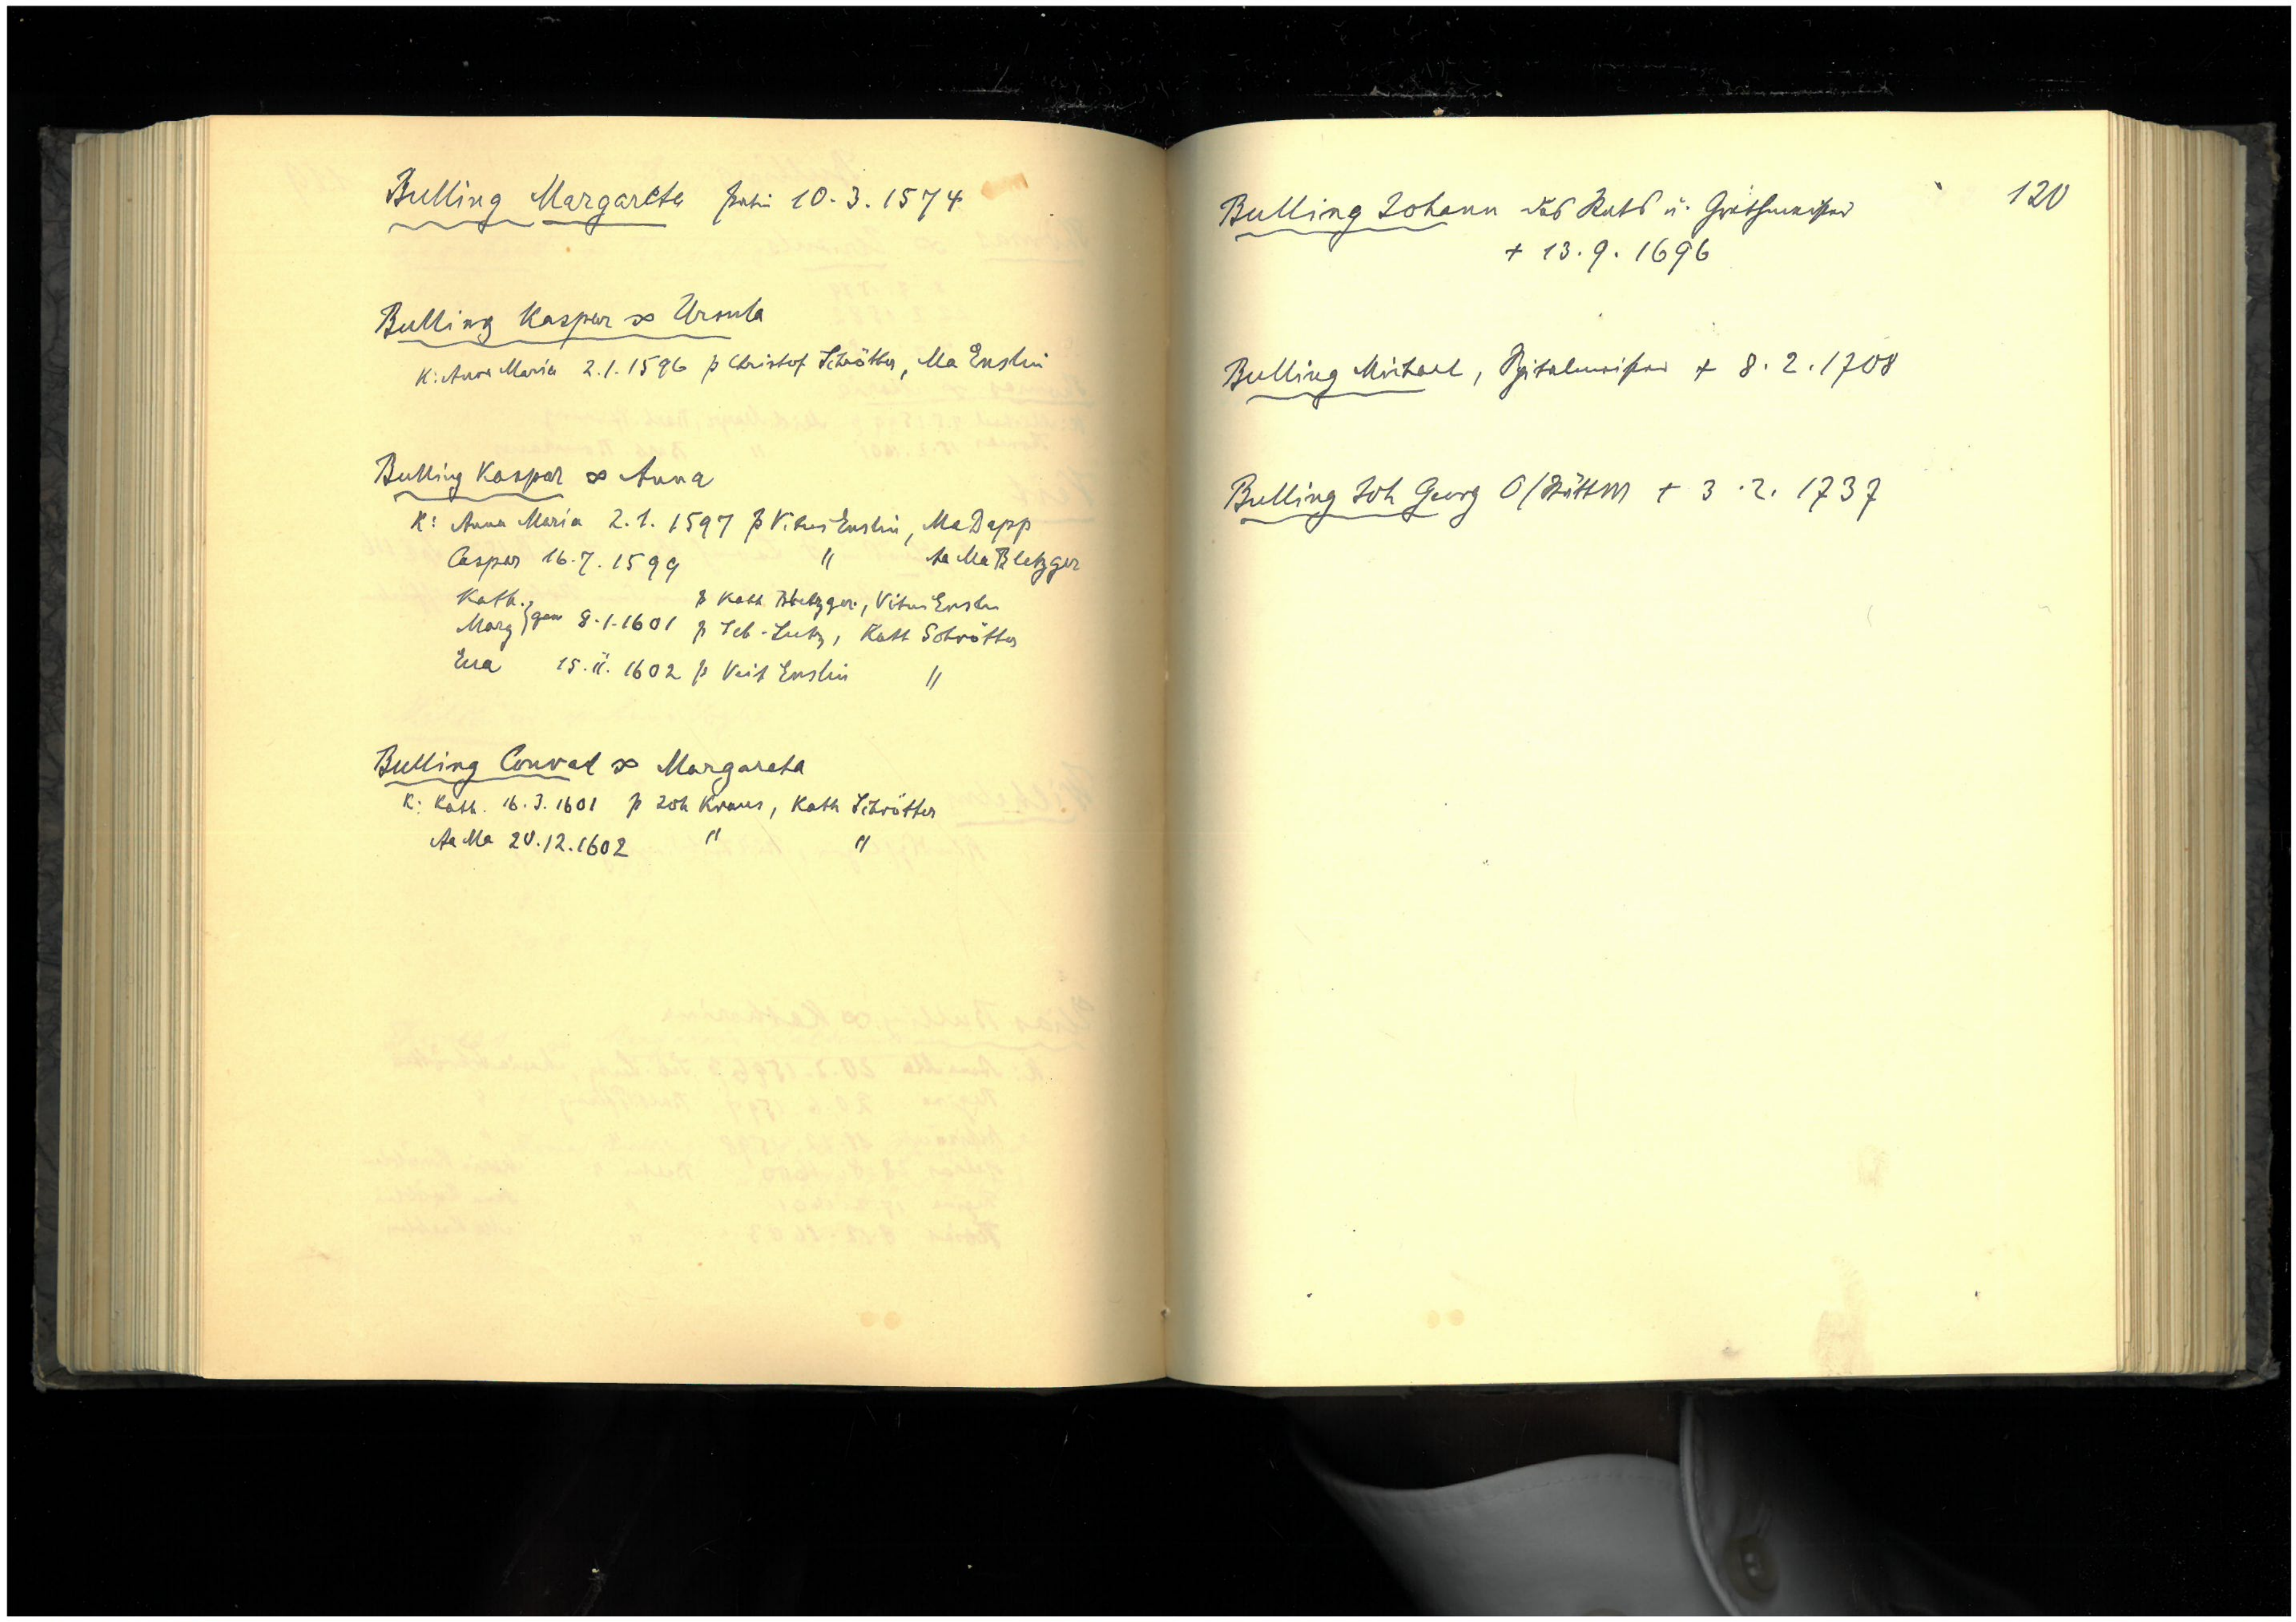 Bulling Margareta patin 10.3.1574
Bulling Kaspar ∞ Ursula
K: Anna Maria 2.1.1596 p Christof Schrötter, Ma Enslin
Bulling Kaspar ∞ Anna
K: Anna Maria 2.1.1597 p Vitus Enslin, Ma Dapp
Caspar 16.7.1599 " Aa Ma Bletzger
Kath. p Kath Bletzger, Vitus Enslin
Marg } gem 8.1.1601 p Seb. Lutz, Kath Schrötter
Eva 15.11.1602 p Veit Enslin "
Bulling Conrad ∞ Margareta
K: Kath. 16.3.1601 p Joh Kraus, Kath Schrötter
Aa Ma 20.12.1602 " "
120
Bulling Johann des Rats u.
+ 13.9.1696
Bulling Michael, Spitalmeister + 8.2.1708
Bulling Joh Georg + 3.2.1737